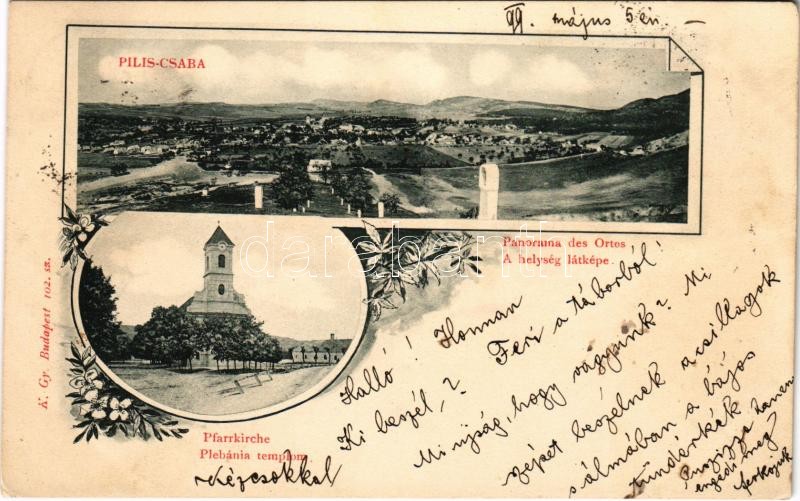 99. május 5 én.
PILIS-CSABA
Panorama des Ortes
A helység látképe.
K. Gy. Budapest 102. sz.
Pfarrkirche
Plebánia templom.
darabanth
Halló! Honnan
Ki beszél,? Feri a táborból!
Mi ujság, hogy vagyunk? Mi
szépet beszélnek a csillagok
álmában a bájos
tündérkék
Kézcsókkal
engedi meg